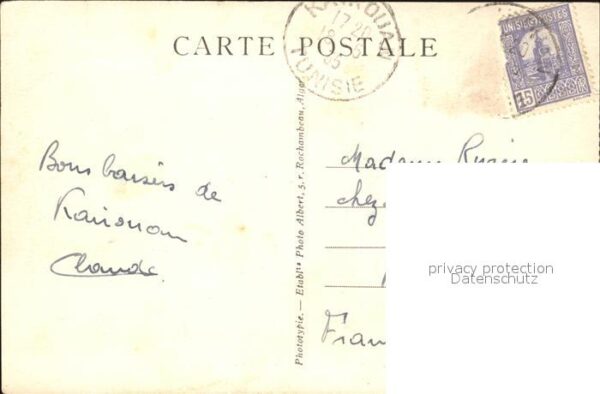 CARTE POSTALE
KAIROUAN
17 20
TUNISIE
TUNISIE POSTES
15
Bons baisers de
Kairouan
Claude
Phototypie. — Etablts Photo Albert, 5, r. Rochambeau, Alger
Madame
chez
Fran
privacy protection
Datenschutz